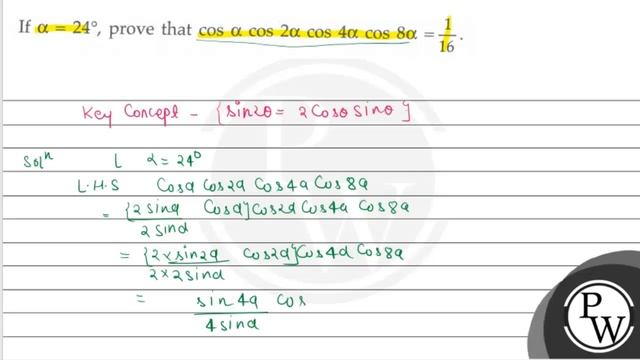 If α = 24°, prove that cos α cos 2α cos 4α cos 8α = 1/16.
Key Concept - {sin2θ = 2cosθ sinθ}
Solⁿ L α = 24°
L.H.S cosα cos2α cos4α cos8α
= {2 sinα cosα} cos2α cos4α cos8α / 2 sinα
= {2 × sin2α cos2α} cos4α cos8α / 2 × 2 sinα
= sin4α cos / 4 sinα
PW
PW